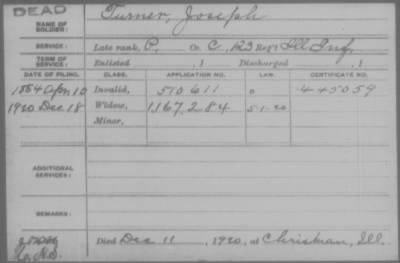 DEAD
NAME OF SOLDIER: Turner, Joseph
SERVICE: Late rank, P, Co. C, 123 Reg't Ill Inf,
TERM OF SERVICE: Enlisted , 1 Discharged , 1
DATE OF FILING. CLASS. APPLICATION NO. LAW. CERTIFICATE NO.
1884 Apr 10 Invalid, 510611 445059
1920 Dec 18 Widow, 1,167,284 5-1-20
Minor,
ADDITIONAL SERVICES:
REMARKS:
Died Dec 11, 1920, at Chrisman, Ill.